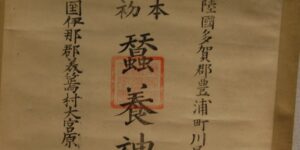 陸國多賀郡豊浦町川尻
本初
蠶養神
国伊那郡義篤村大宮原